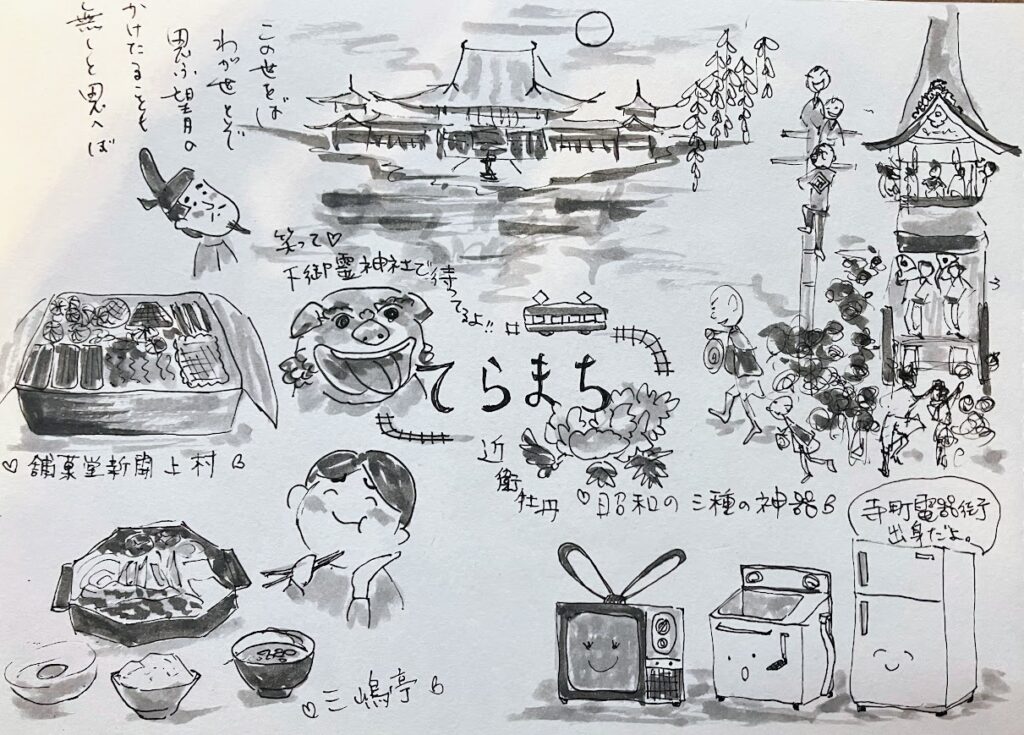 この世をば
わがせとぞ
思ふ望月の
かけたることも
無しと思へば
笑って♡
下御霊神社で待ってるよ!!
てらまち
近衛牡丹
♡舗菓堂新開上村
♡昭和の三種の神器
寺町電器街
出身だよ。
♡三嶋亭